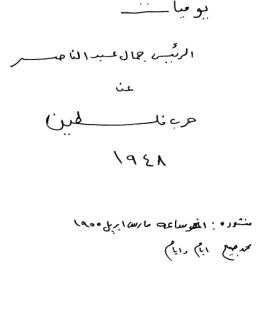 يوميات
الرئيس جمال عبد الناصر
عن
حرب فلسطين
١٩٤٨
منشوره : اخر ساعه مارس ابريل ١٩٥٥
ايام وايام